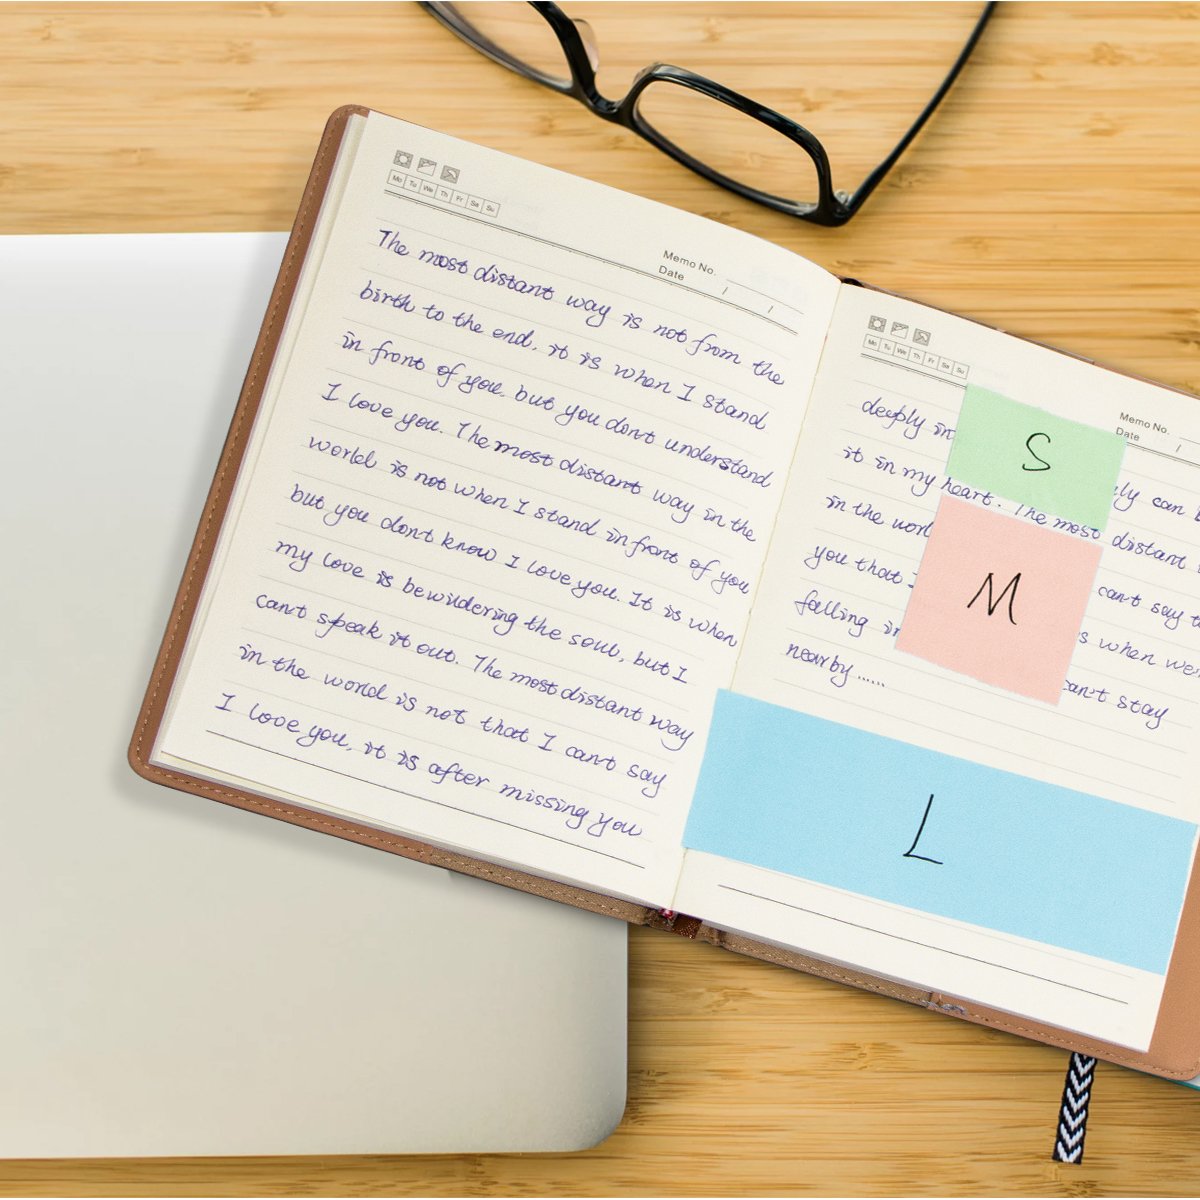 Mo Tu We Th Fr Sa Su
Memo No.
Date / /
The most distant way is not from the
birth to the end. it is when I stand
in front of you. but you don't understand
I love you. The most distant way in the
world is not when I stand in front of you
but you don't know I love you. It is when
my love is bewildering the soul, but I
can't speak it out. The most distant way
in the world is not that I can't say
I love you, it is after missing you
Mo Tu We Th Fr Sa Su
Memo No.
Date /
deeply in
it in my heart. ly can
in the The most distant
you that can't say
falling s when
nearby...... can't stay
S
M
L